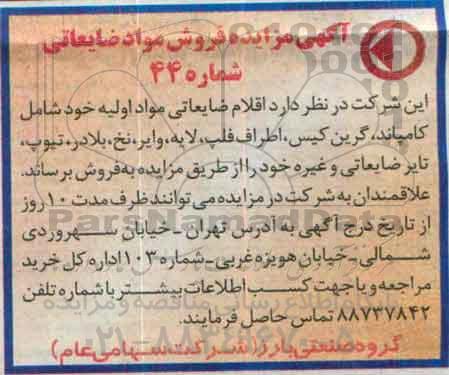 آگهی مزایده فروش مواد ضایعاتی
شماره ۴۴
این شرکت در نظر دارد اقلام ضایعاتی مواد اولیه خود شامل
کامپاند، گرین کیس، اطراف فلپ، لایه، وایر، نخ، بلادر، تیوپ،
تایر ضایعاتی و غیره خود را از طریق مزایده به فروش برساند.
علاقمندان به شرکت در مزایده می توانند ظرف مدت ۱۰ روز
از تاریخ درج آگهی به آدرس تهران - خیابان سهروردی
شمالی - خیابان هویزه غربی - شماره ۱۰۳ اداره کل خرید
مراجعه و یا جهت کسب اطلاعات بیشتر با شماره تلفن
۸۸۷۳۷۸۴۲ تماس حاصل فرمایند.
گروه صنعتی بارز (شرکت سهامی عام)
ParsNamadData